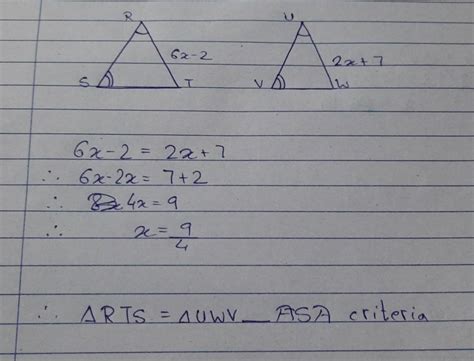 R U
6x-2 2x+7
S T V W
6x-2 = 2x+7
∴ 6x-2x = 7+2
∴ 4x = 9
∴ x = 9/4
∴ ΔRTS = ΔUWV _ ASA criteria